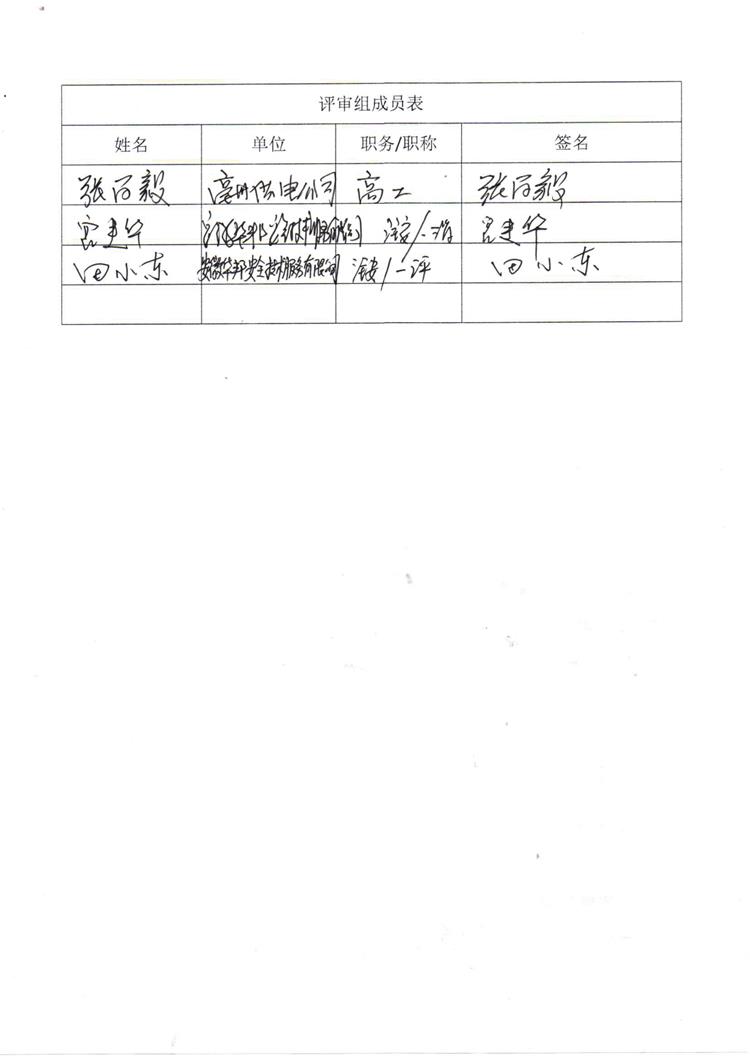 评审组成员表
姓名 单位 职务/职称 签名
张 毅 亳州供电公司 高工 张 毅
宫建华 宫建华
田小东 安徽华邦安全技术服务有限公司 注安/一评 田小东